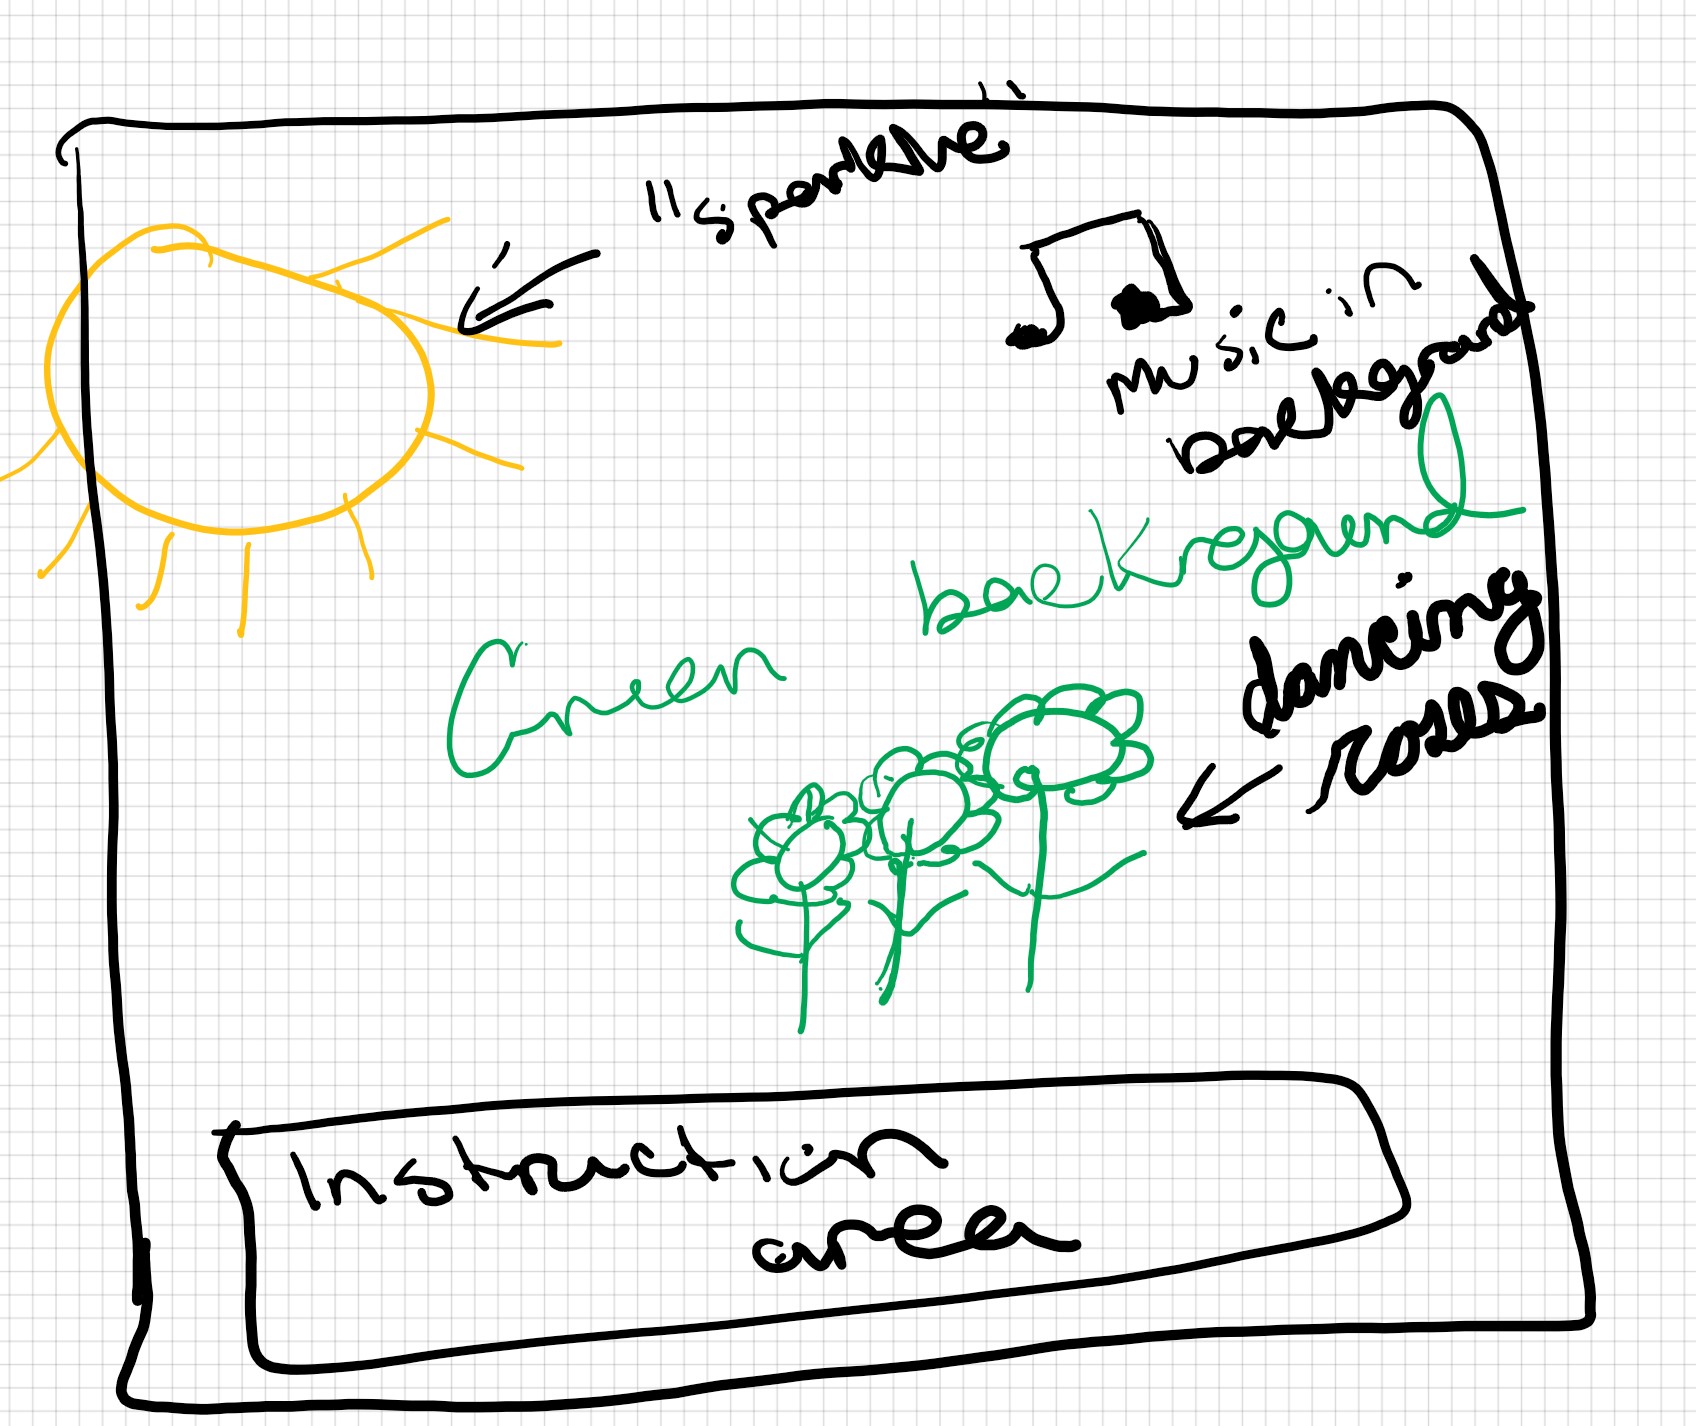 "sparkle"
music in
background
Green background
dancing
roses
Instruction
area